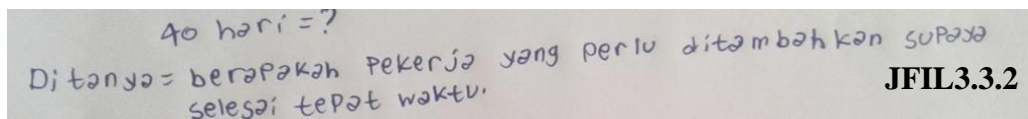 40 hari = ?
Ditanya = berapakah pekerja yang perlu ditambahkan supaya
JFIL3.3.2
selesai tepat waktu.